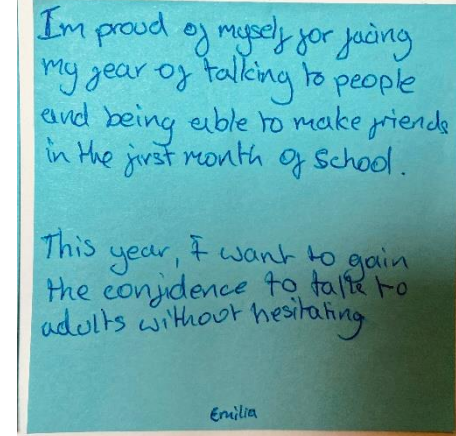 Im proud of myself for facing
my fear of talking to people
and being able to make friends
in the first month of school.
This year, I want to gain
the confidence to talk to
adults without hesitating
Emilia